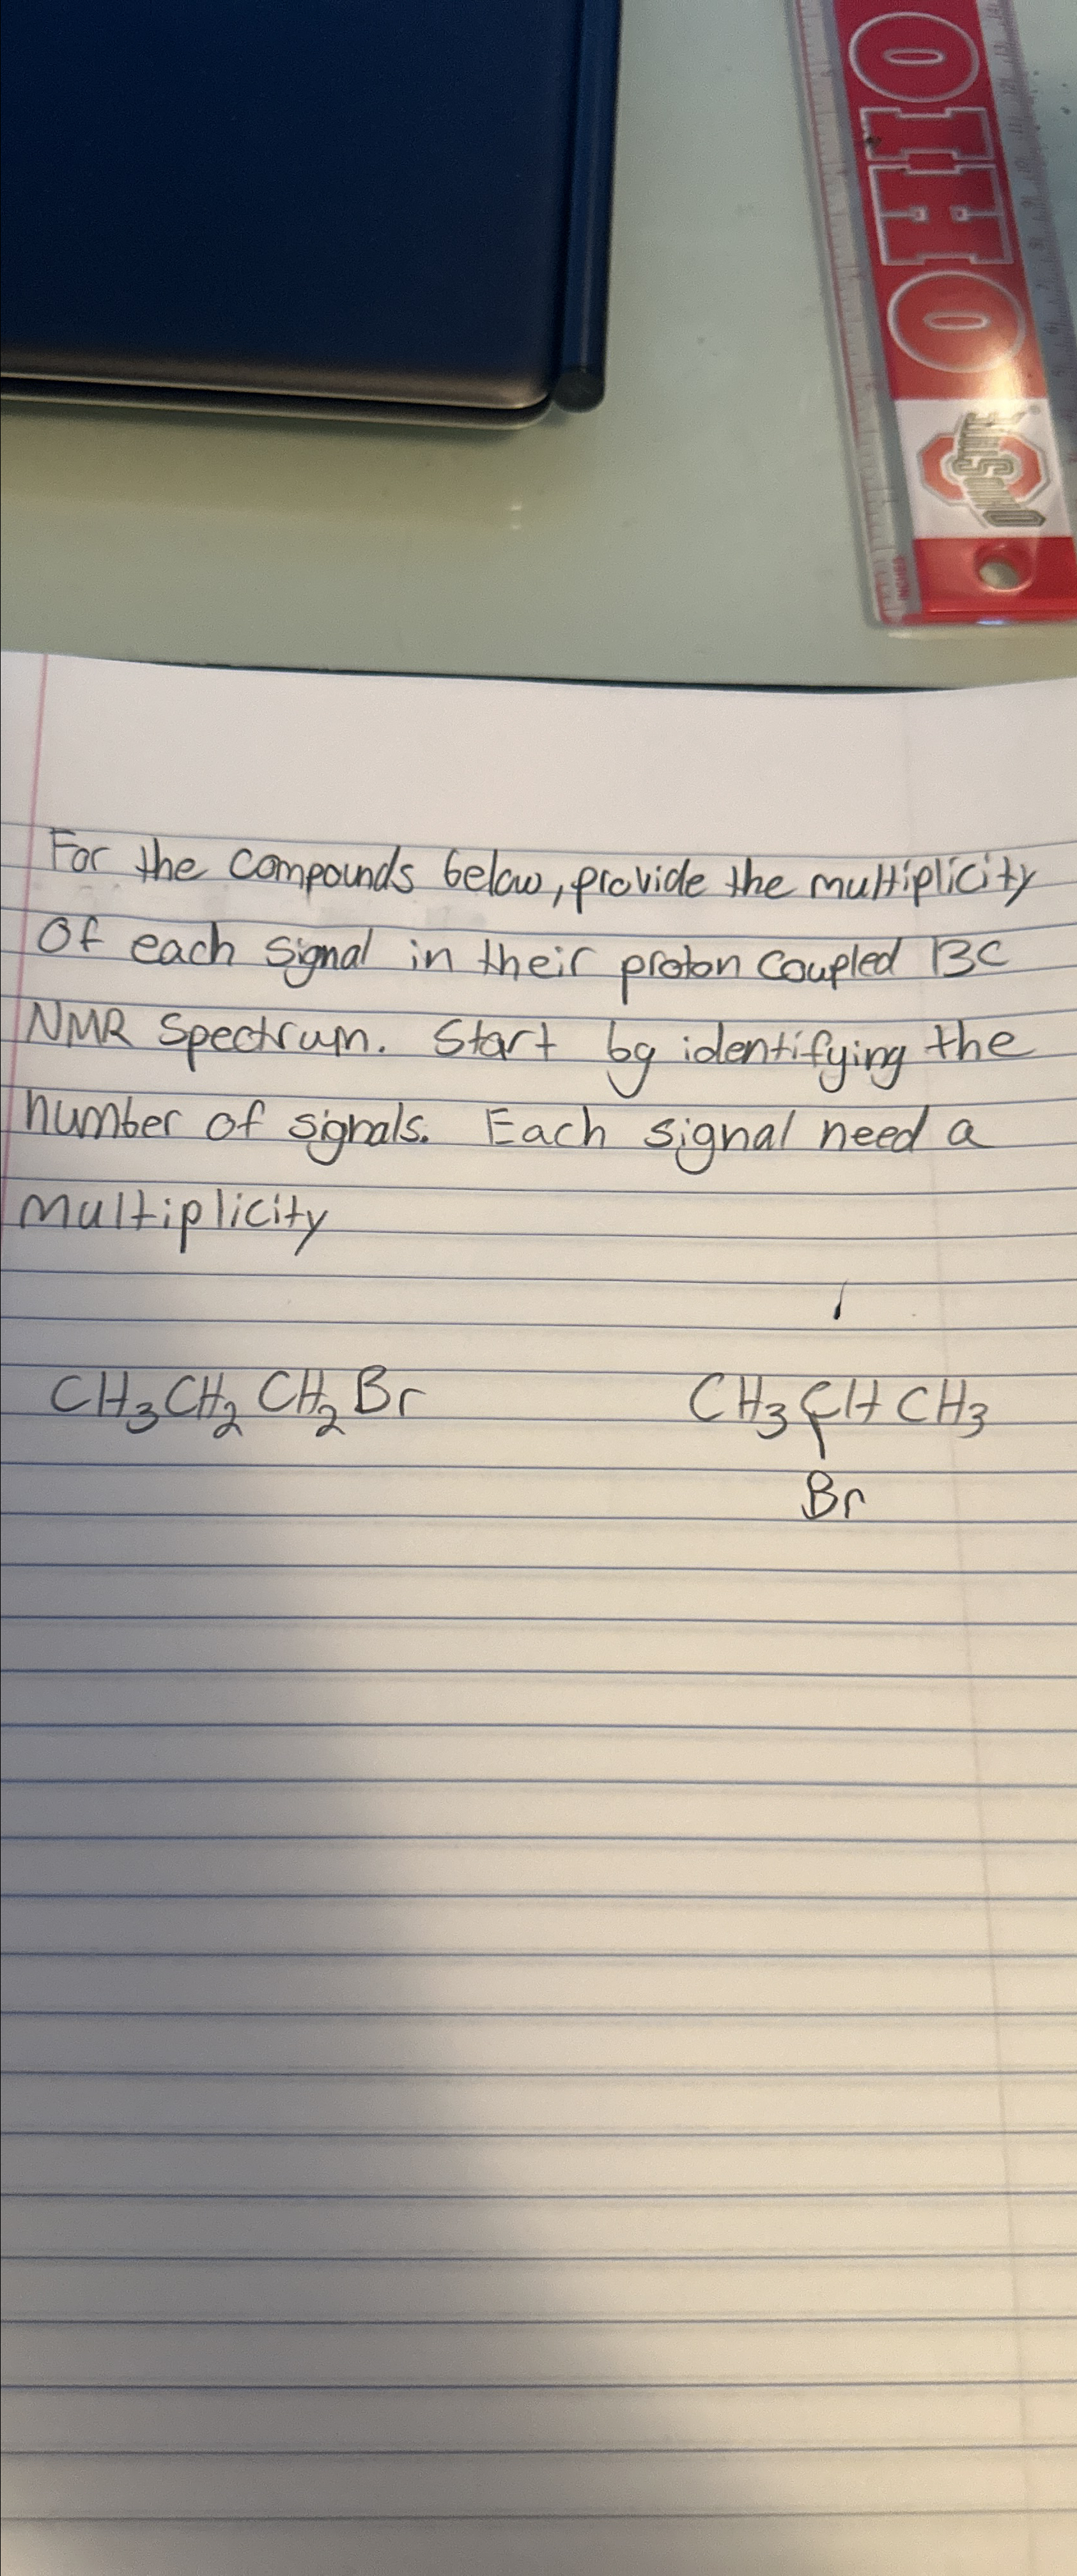 OHIO
OHIO STATE
INCHES
For the compounds below, provide the multiplicity
Of each signal in their proton coupled 13C
NMR Spectrum. Start by identifying the
number of signals. Each signal need a
multiplicity
CH3CH2CH2Br CH3CHCH3
Br